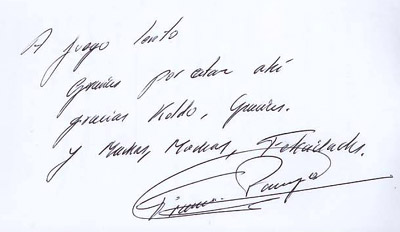 A fuego lento
Gracias por estar ahí
gracias Koldo, Gracias.
y Muchas, Muchas, Felicidades.